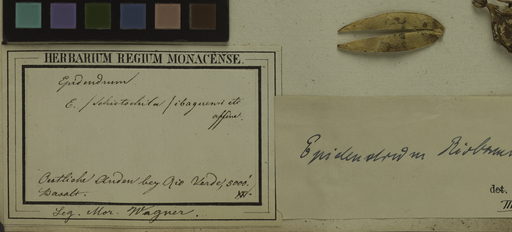 HERBARIUM REGIUM MONACENSE.
Epidendrum
E. / Schistochila / ibaguense etc
affine.
Oestliche Anden bey Rio Verde, 5000'.
Basalt.
Leg. Mor. Wagner.
Epidendrum
det.